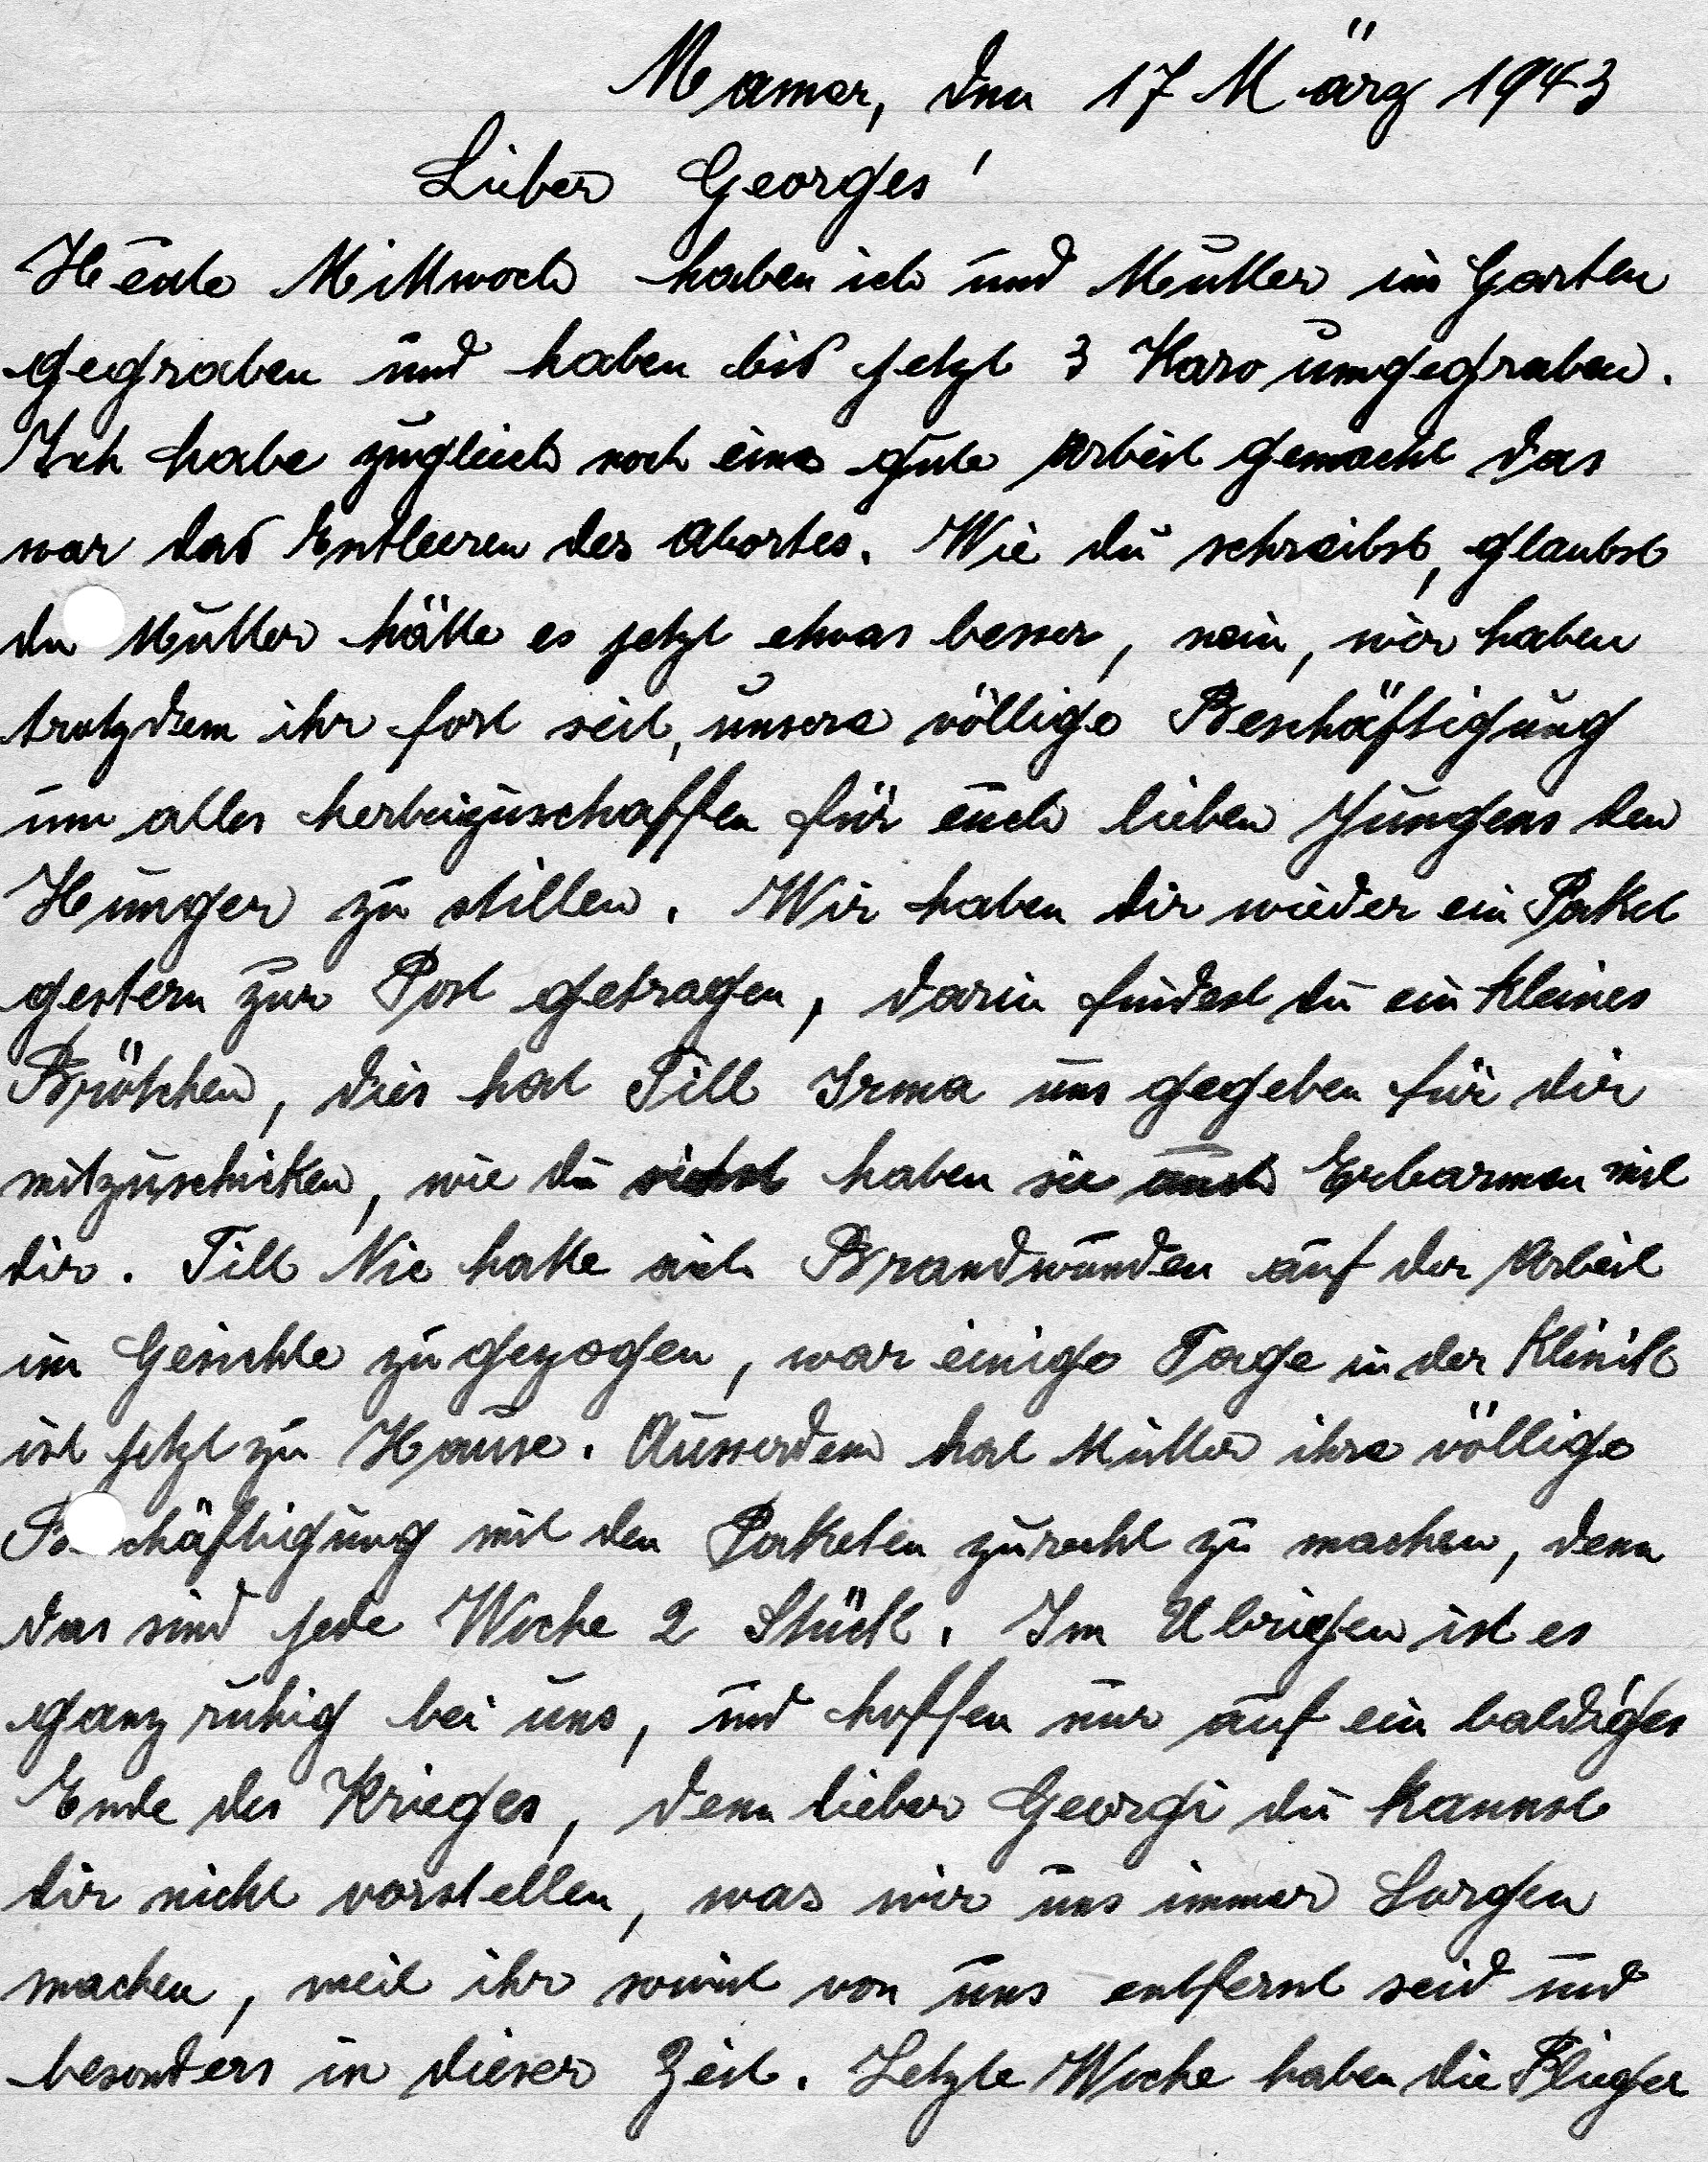 Mamer, den 17 März 1943
Lieber Georges!
Heute Mittwoch haben ich und Mutter im Garten
gegraben und haben bis jetzt 3 Karo umgegraben.
Ich habe zugleich noch eine gute Arbeit gemacht das
war das Entleeren des Abortes. Wie du schreibst, glaubst
du Mutter hätte es jetzt etwas besser, nein, wir haben
trotzdem ihr fort seit, unsere völlige Beschäftigung
um alles herbeizuschaffen für euch lieben Jungens den
Hunger zu stillen. Wir haben dir wieder ein Paket
gestern zur Post getragen, darin findest du ein kleines
Brötchen, dies hat Till Irma uns gegeben für dir
mitzuschicken, wie du siehst haben sie auch Erbarmen mit
dir. Till Nic hatte sich Brandwunden auf der Arbeit
im Gesichte zugezogen, war einige Tage in der Klinik
ist jetzt zu Hause. Ausserdem hat Mutter ihre völlige
Beschäftigung mit den Paketen zurecht zu machen, denn
das sind jede Woche 2 Stück. Im Ubrigen ist es
ganz ruhig bei uns, und hoffen nur auf ein baldiges
Ende des Krieges, denn lieber Georgi du kannst
dir nicht vorstellen, was wir uns immer Sorgen
machen, weil ihr soweit von uns entfernt seid und
besonders in dieser Zeit. Letzte Woche haben die Flieger